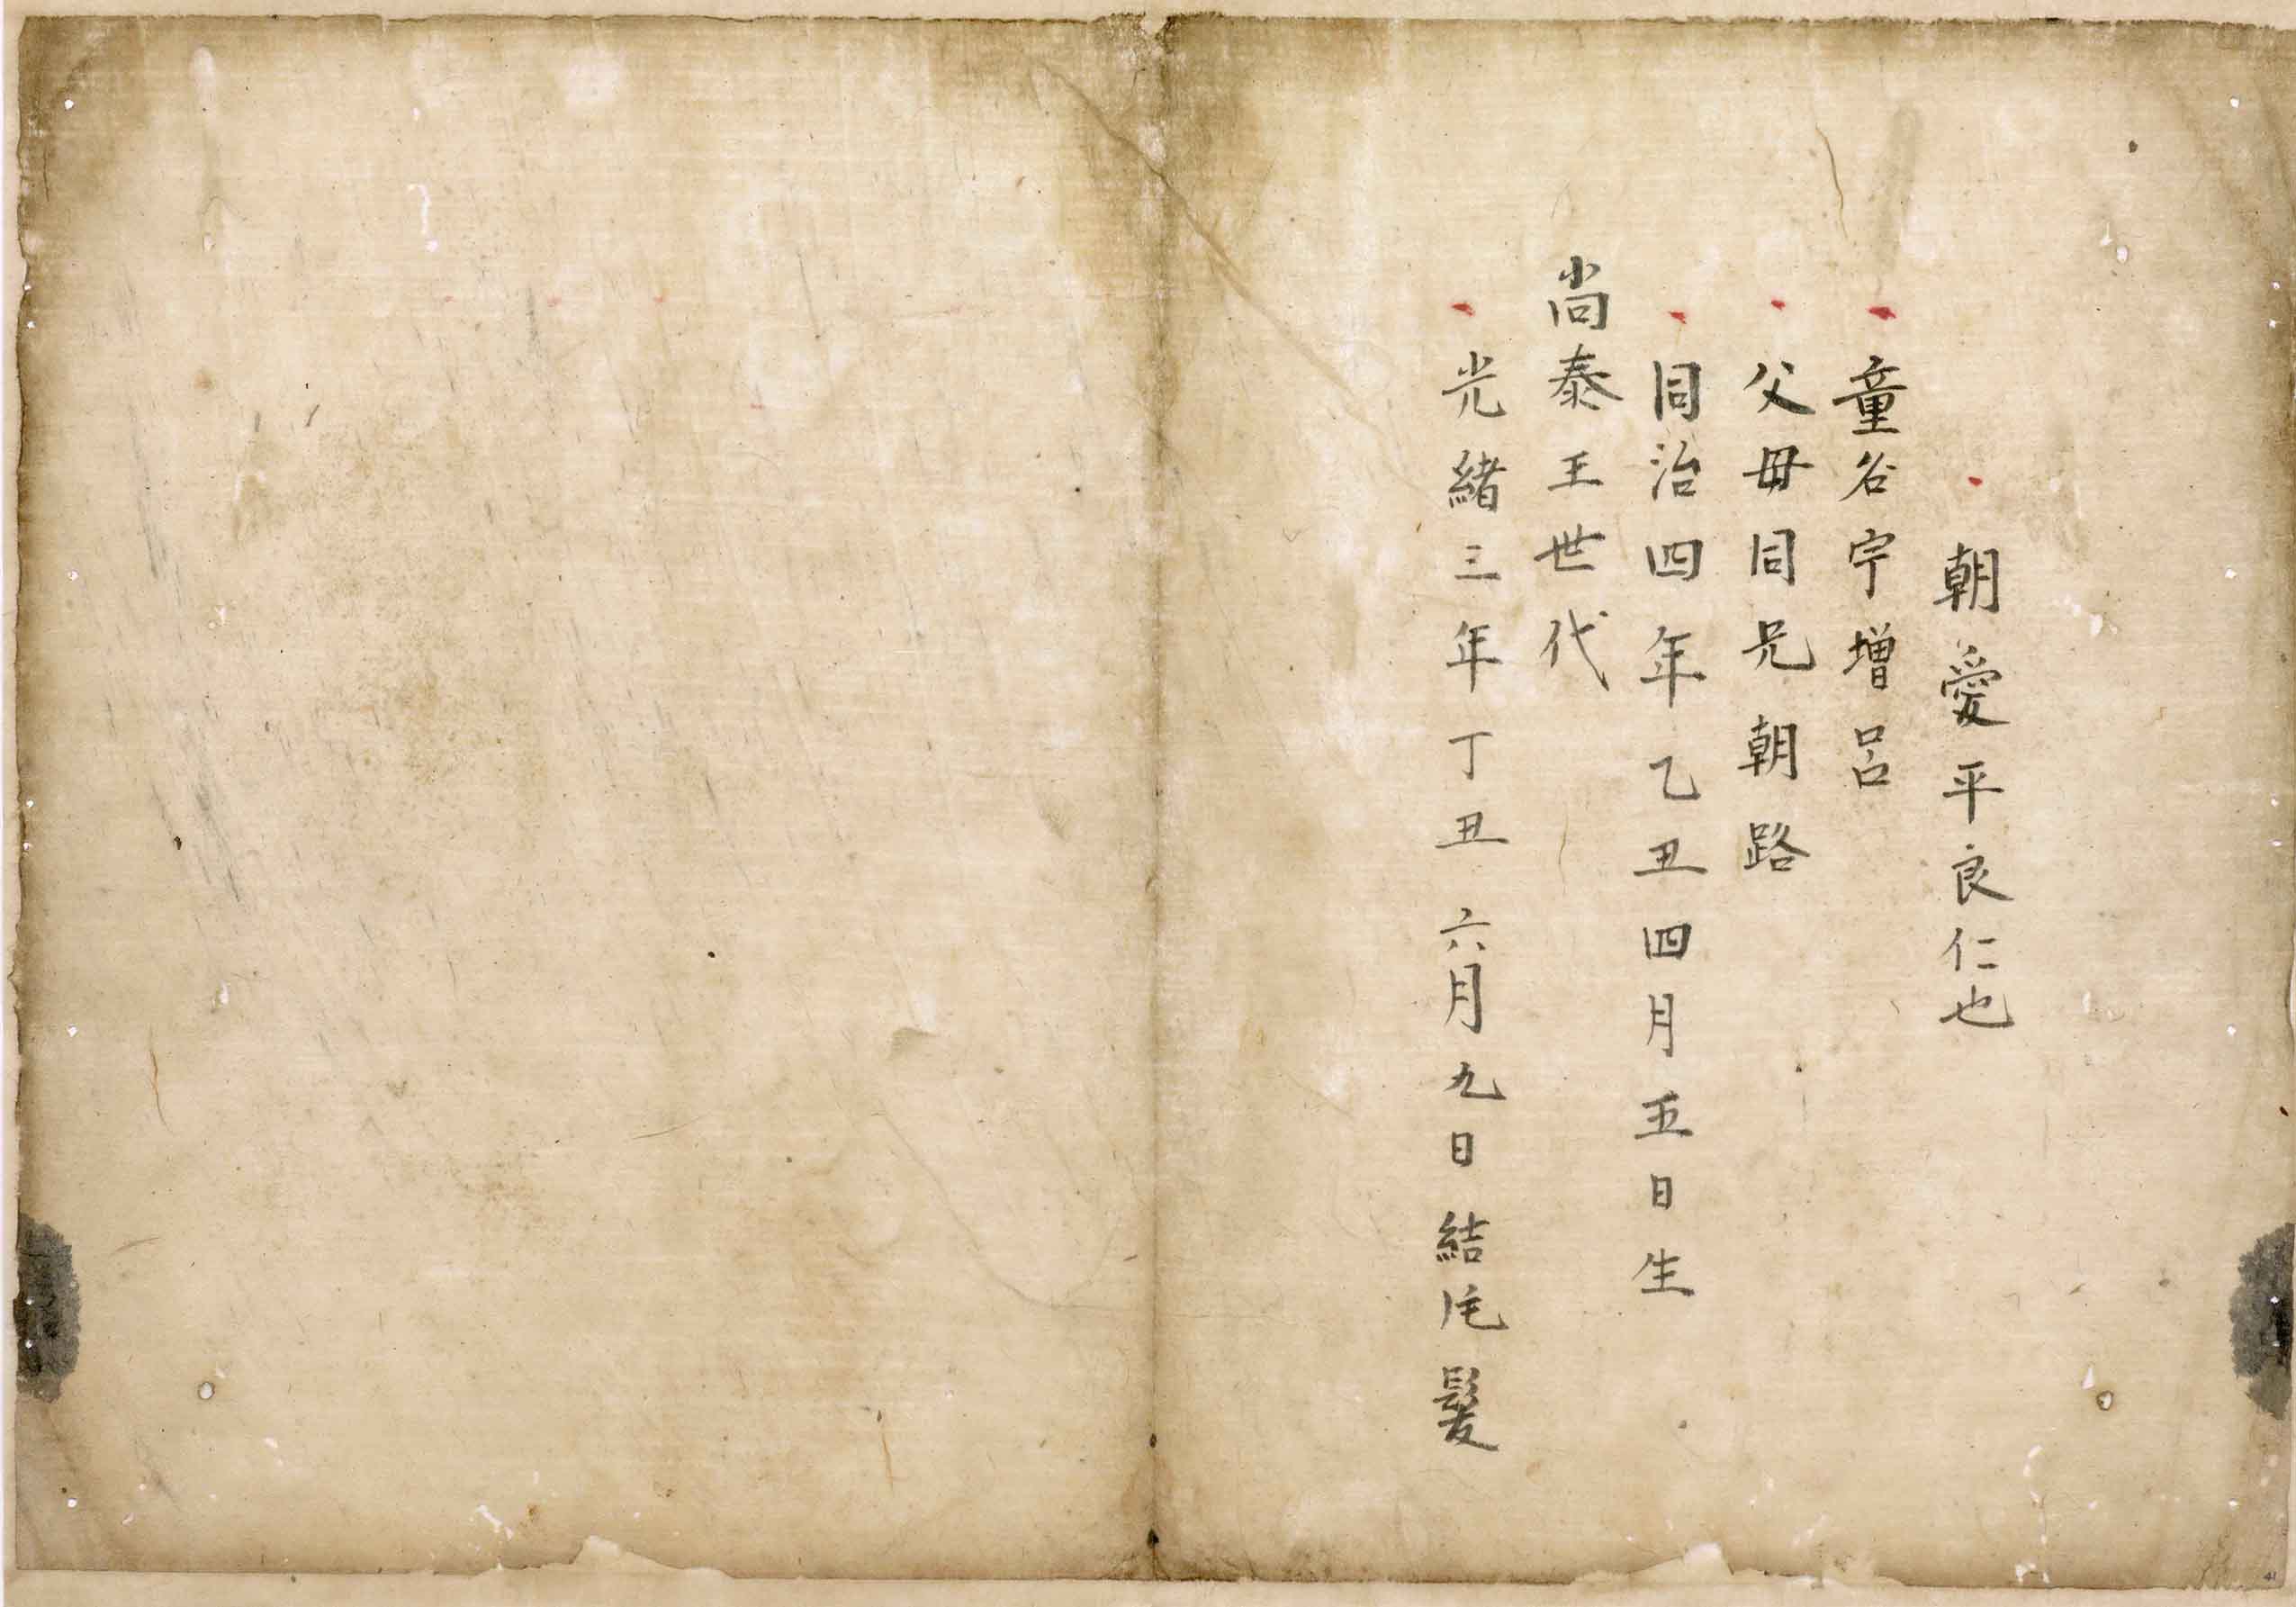 朝愛平良仁也
童名宇増呂
父母同兄朝路
同治四年乙丑四月五日生
尚泰王世代
光緒三年丁丑六月九日結髮
41